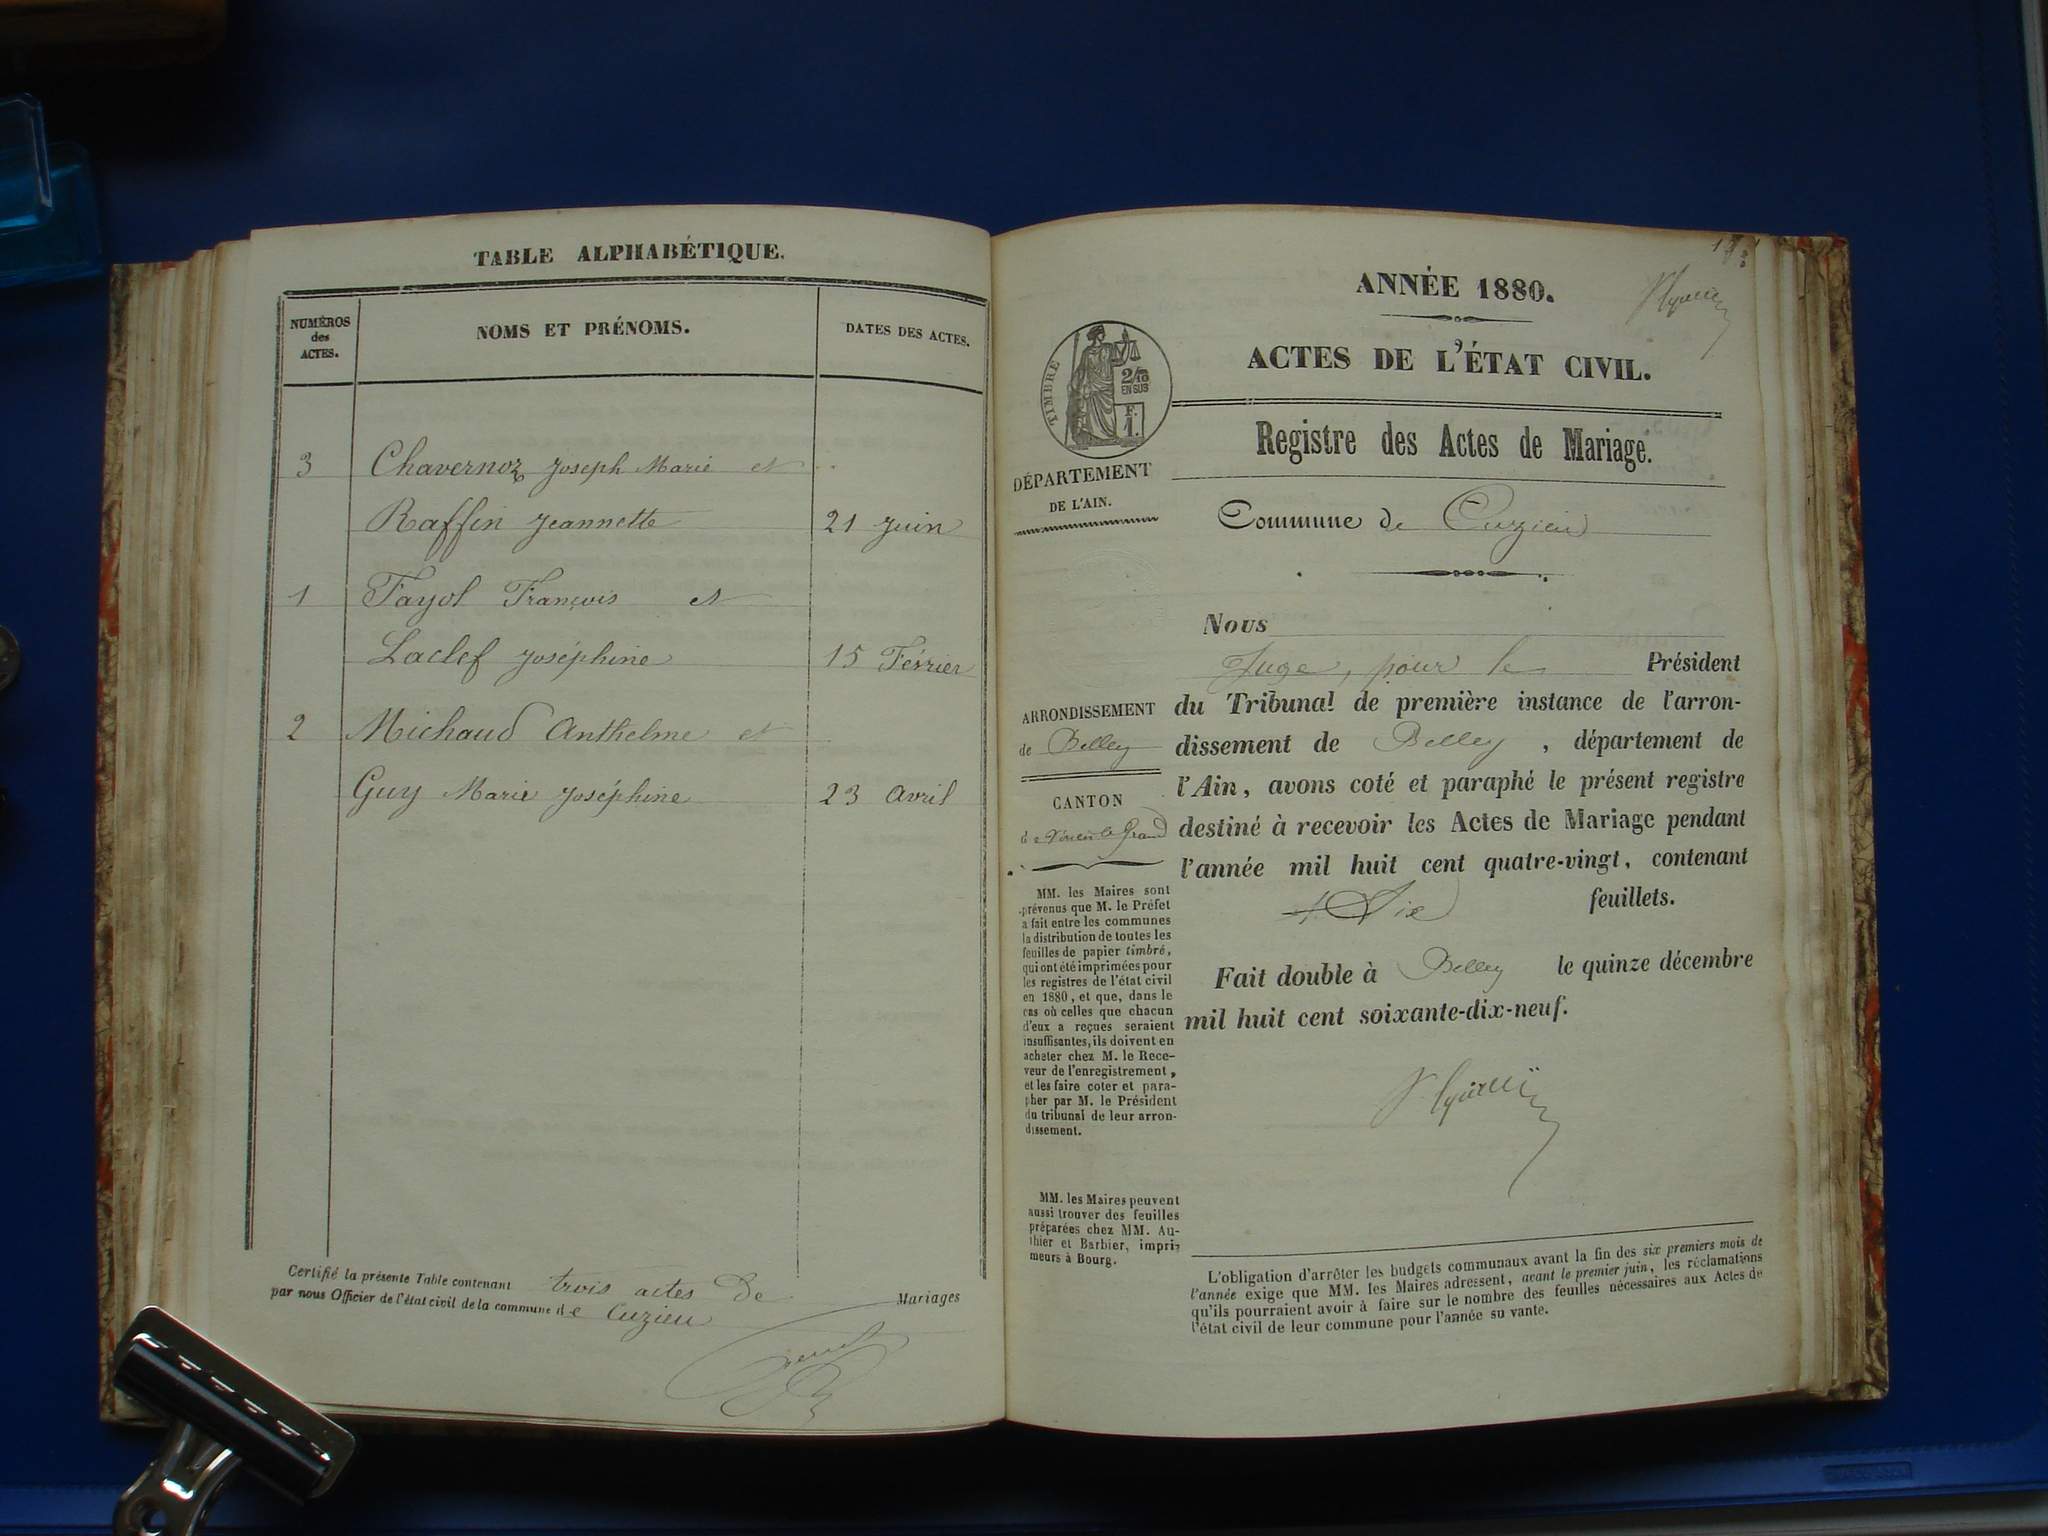 TABLE ALPHABÉTIQUE.
NUMÉROS
des
ACTES.
NOMS ET PRÉNOMS.
DATES DES ACTES.
3 Chavernoz Joseph Marie et
Raffin Jeannette 21 Juin
1 Fayol François et
Laclef Joséphine 15 Février
2 Michaud Anthelme et
Guy Marie Joséphine 23 Avril
Certifié la présente Table contenant trois actes de Mariages
par nous Officier de l'état civil de la commune de Cuzieu
ANNÉE 1880.
ACTES DE L'ÉTAT CIVIL.
TIMBRE
2/10
EN SUS
F.
1.
DÉPARTEMENT
DE L'AIN.
Registre des Actes de Mariage.
Commune de Cuzieu
Nous
Juge, pour le Président
du Tribunal de première instance de l'arron-
dissement de Belley, département de
l'Ain, avons coté et paraphé le présent registre
destiné à recevoir les Actes de Mariage pendant
l'année mil huit cent quatre-vingt, contenant
Six feuillets.
Fait double à Belley le quinze décembre
mil huit cent soixante-dix-neuf.
ARRONDISSEMENT
de Belley
CANTON
de Virieu le Grand
MM. les Maires sont
prévenus que M. le Préfet
a fait entre les communes
la distribution de toutes les
feuilles de papier timbré,
qui ont été imprimées pour
les registres de l'état civil
en 1880, et que, dans le
cas où celles que chacun
d'eux a reçues seraient
insuffisantes, ils doivent en
acheter chez M. le Rece-
veur de l'enregistrement,
et les faire coter et para-
pher par M. le Président
du tribunal de leur arron-
dissement.
MM. les Maires peuvent
aussi trouver des feuilles
préparées chez MM. Au-
thier et Barbier, impri-
meurs à Bourg.
L'obligation d'arrêter les budgets communaux avant la fin des six premiers mois de
l'année exige que MM. les Maires adressent, avant le premier juin, les réclamations
qu'ils pourraient avoir à faire sur le nombre des feuilles nécessaires aux Actes de
l'état civil de leur commune pour l'année su vante.